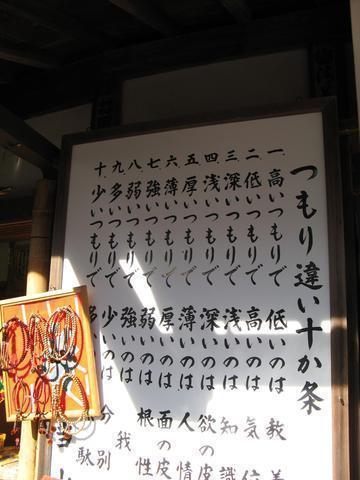 つもり違い十か条
一、高いつもりで 低いのは 教養
二、低いつもりで 高いのは 気位
三、深いつもりで 浅いのは 知識
四、浅いつもりで 深いのは 欲の皮
五、厚いつもりで 薄いのは 人情
六、薄いつもりで 厚いのは 面の皮
七、強いつもりで 弱いのは 根性
八、弱いつもりで 強いのは 我
九、多いつもりで 少いのは 分別
十、少いつもりで 多い 駄